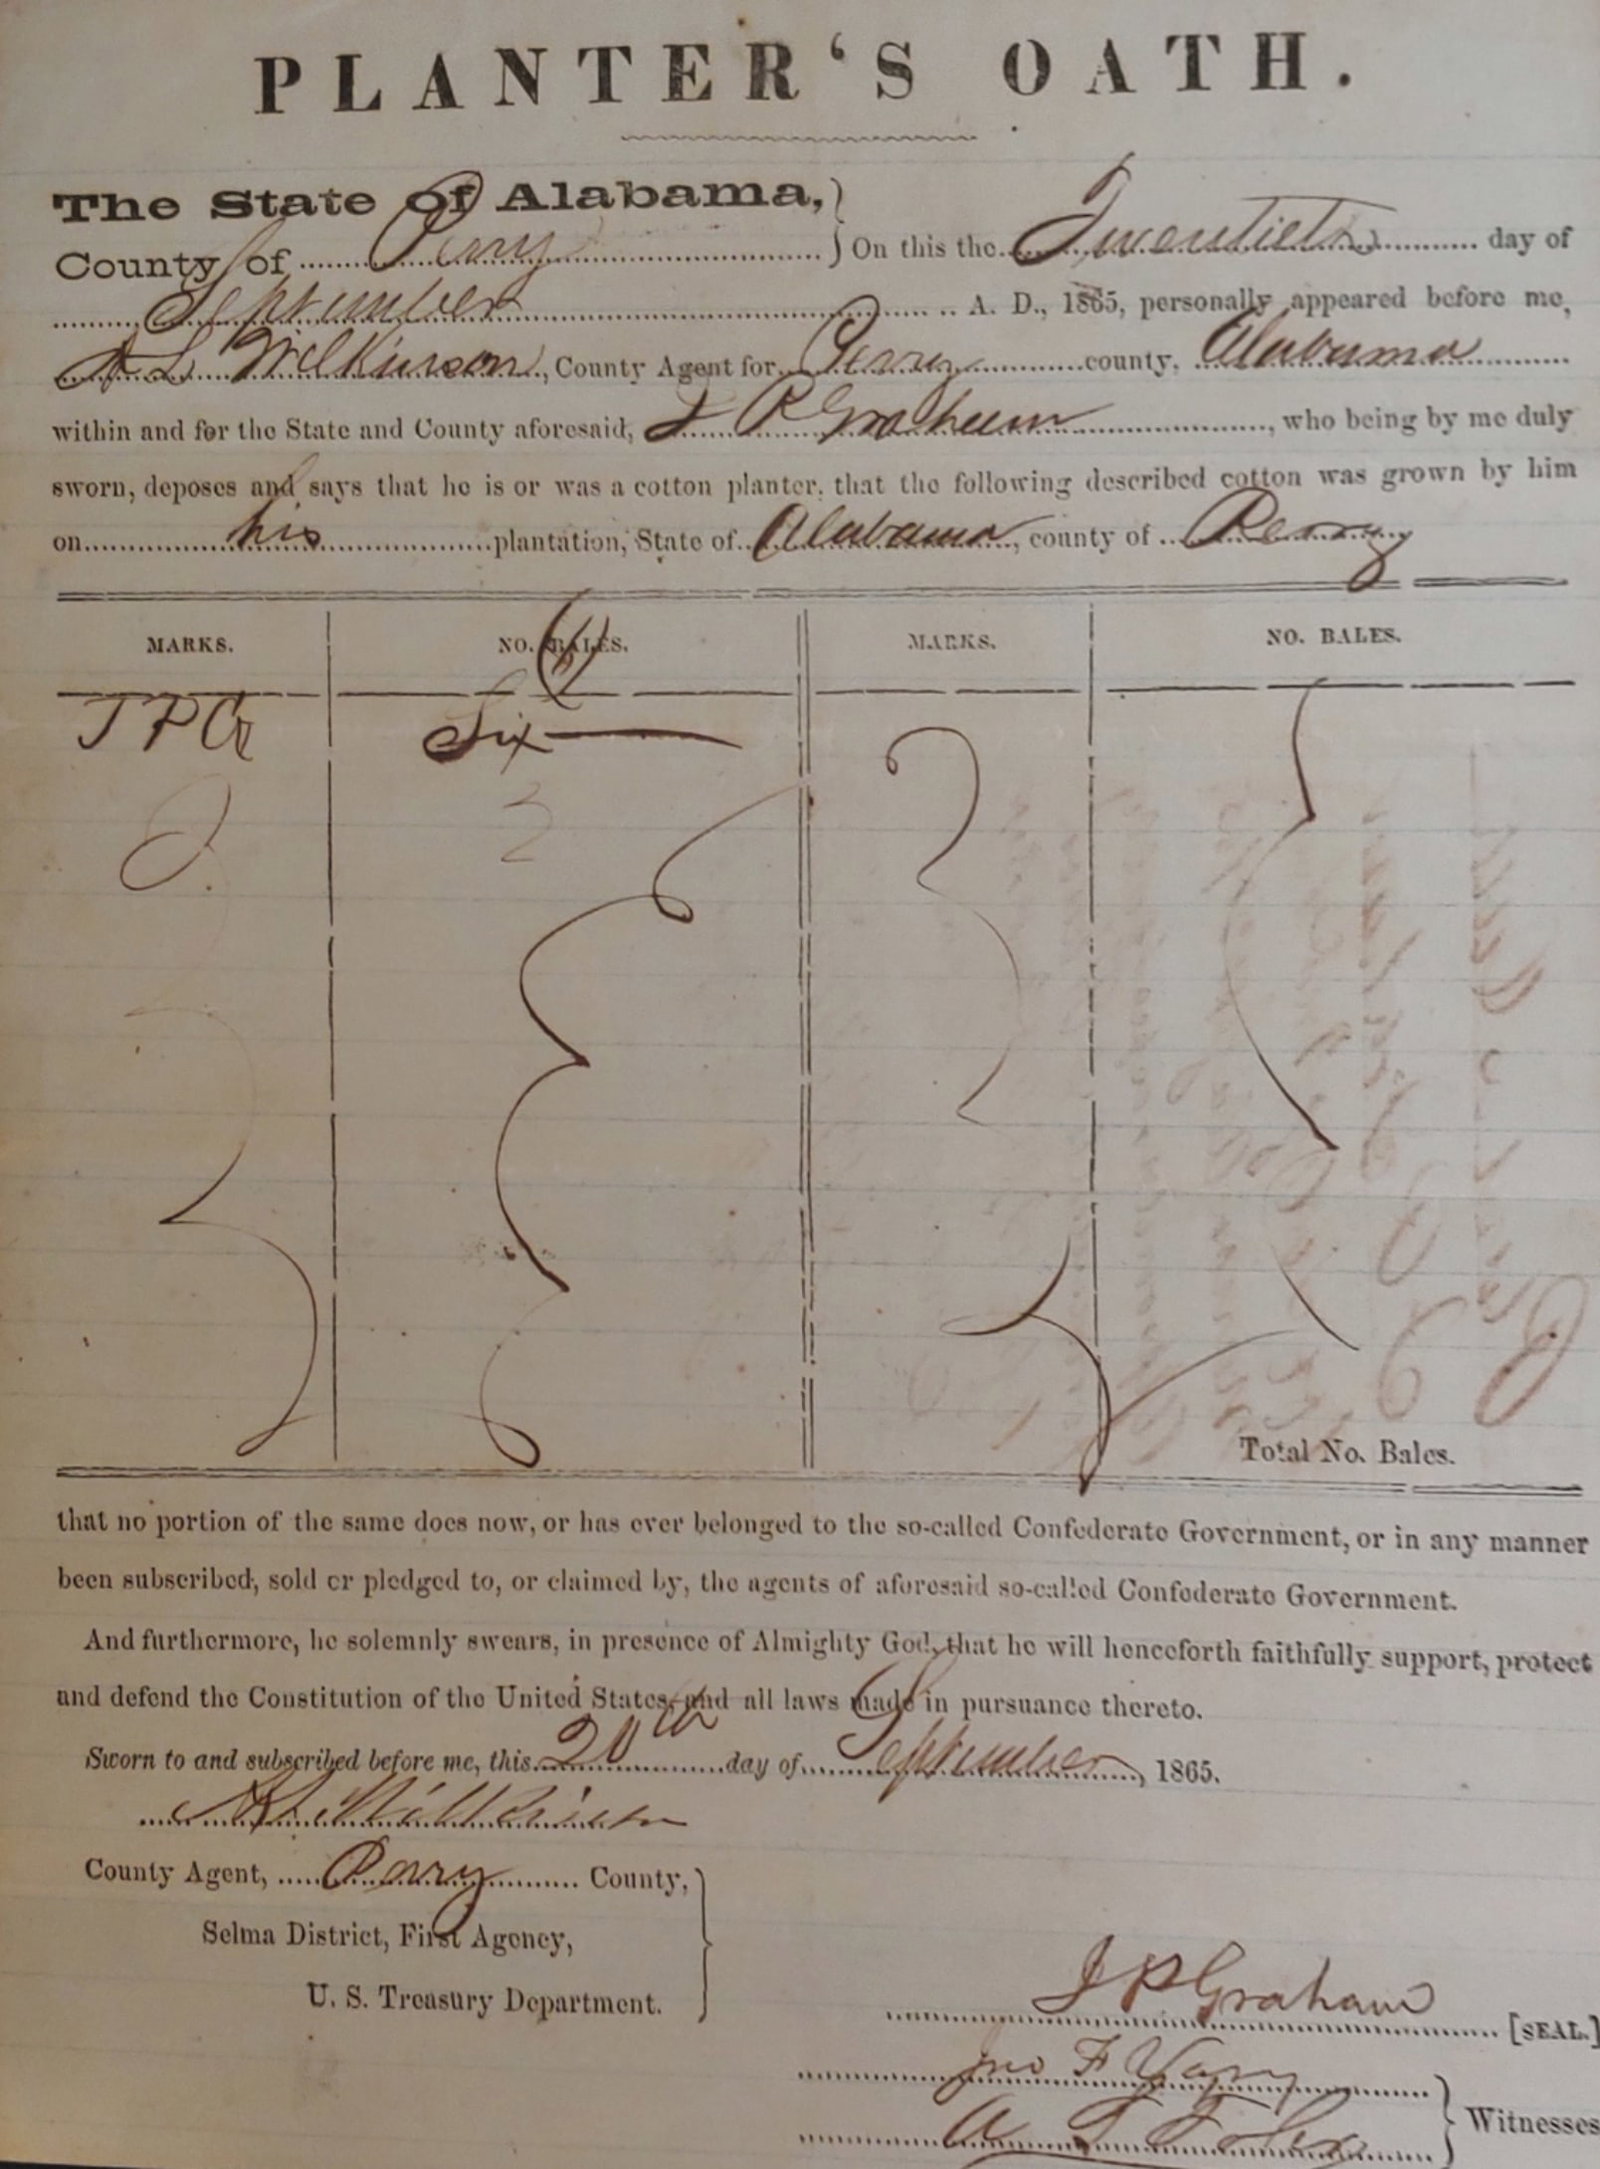 PLANTER'S OATH.
The State of Alabama,
County of Perry } On this the Twentieth day of
September A. D., 1865, personally appeared before me,
A L Wilkinson, County Agent for Perry county, Alabama
within and for the State and County aforesaid, J P Graham, who being by me duly
sworn, deposes and says that he is or was a cotton planter, that the following described cotton was grown by him
on his plantation, State of Alabama, county of Perry
MARKS. NO. BALES. MARKS. NO. BALES.
(6)
J P G Six
Total No. Bales.
that no portion of the same does now, or has ever belonged to the so-called Confederate Government, or in any manner
been subscribed, sold or pledged to, or claimed by, the agents of aforesaid so-called Confederate Government.
And furthermore, he solemnly swears, in presence of Almighty God, that he will henceforth faithfully support, protect
and defend the Constitution of the United States, and all laws made in pursuance thereto.
Sworn to and subscribed before me, this 20th day of September, 1865.
A L Wilkinson
County Agent, Perry County,
Selma District, First Agency,
U. S. Treasury Department.
J P Graham [SEAL.]
Jno F Vary
Witnesses